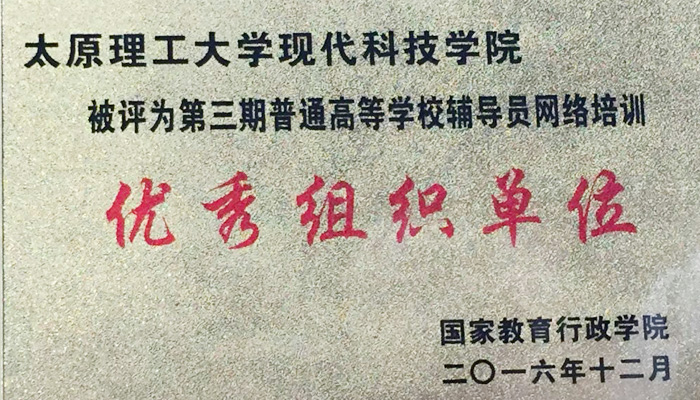 太原理工大学现代科技学院
被评为第三期普通高等学校辅导员网络培训
优秀组织单位
国家教育行政学院
二〇一六年十二月